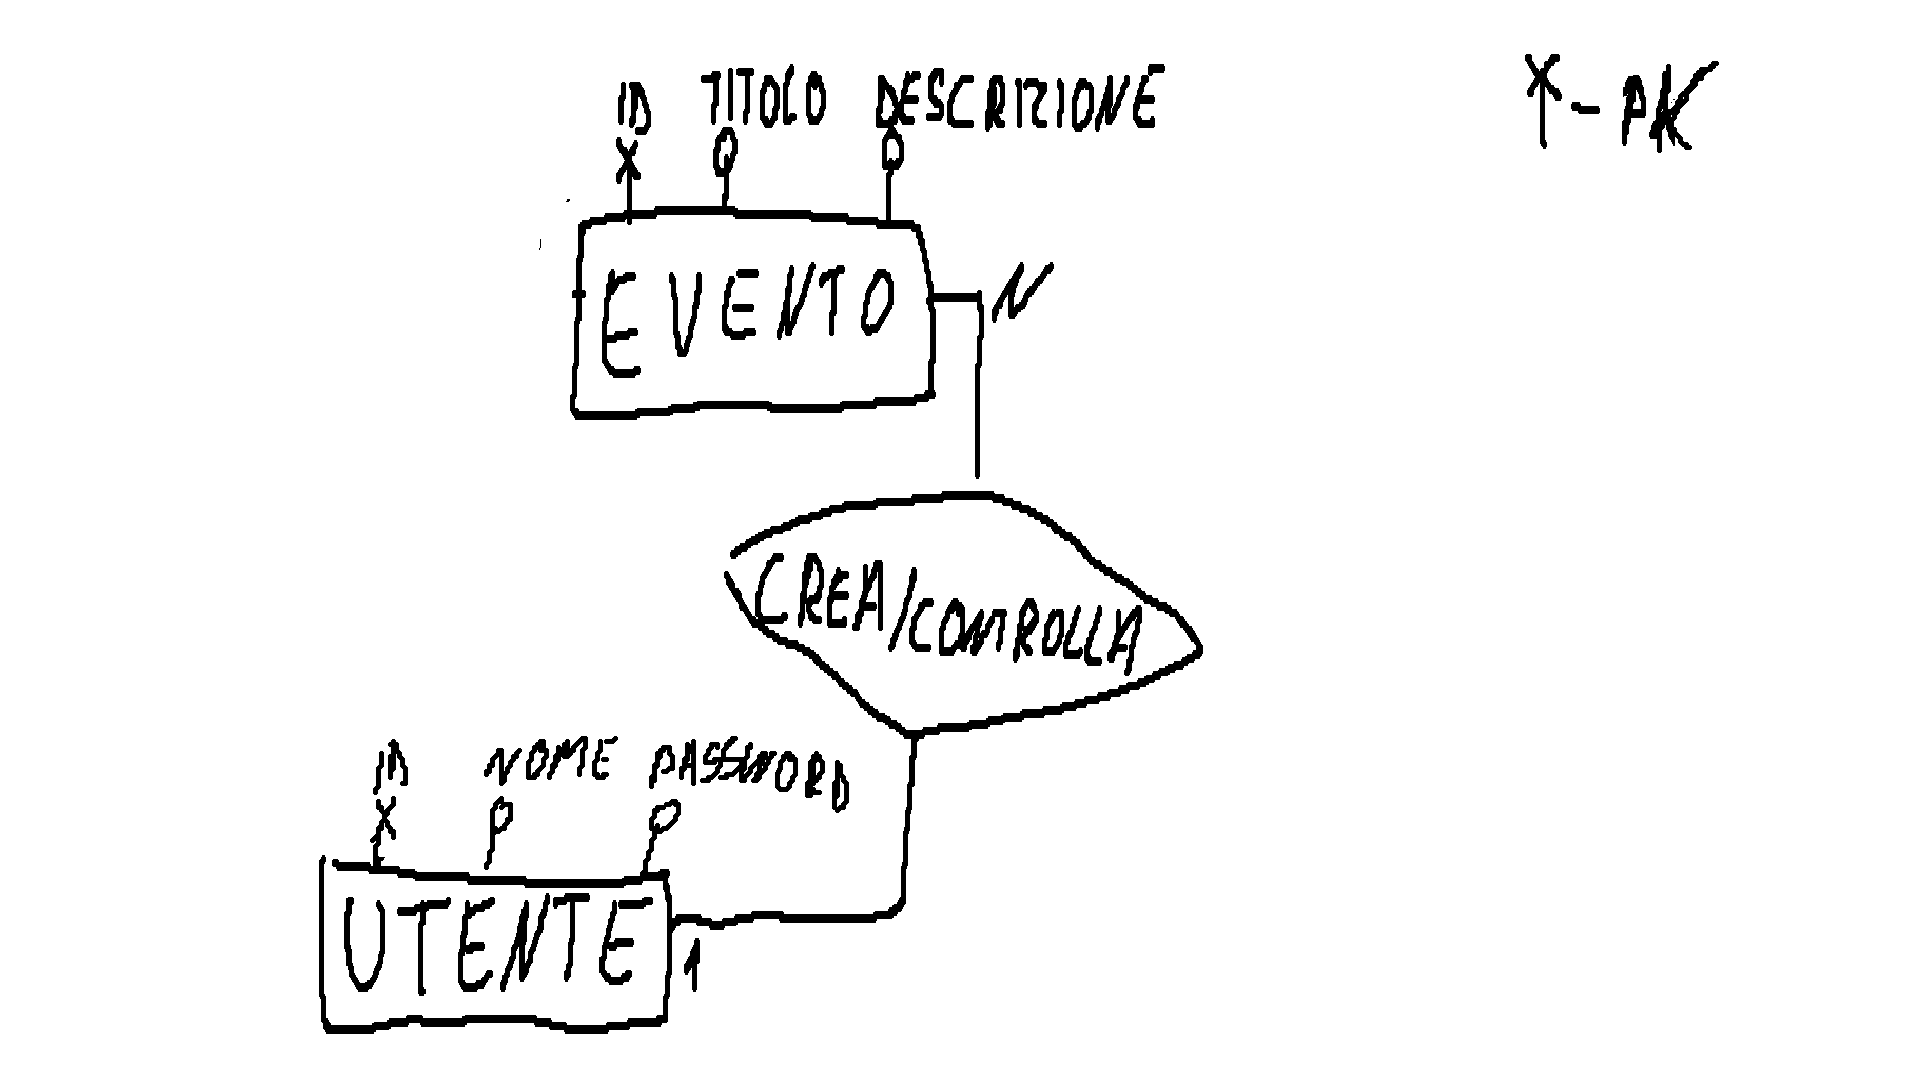 ID TITOLO DESCRIZIONE
X - PK
EVENTO
N
CREA/CONTROLLA
ID NOME PASSWORD
UTENTE
1